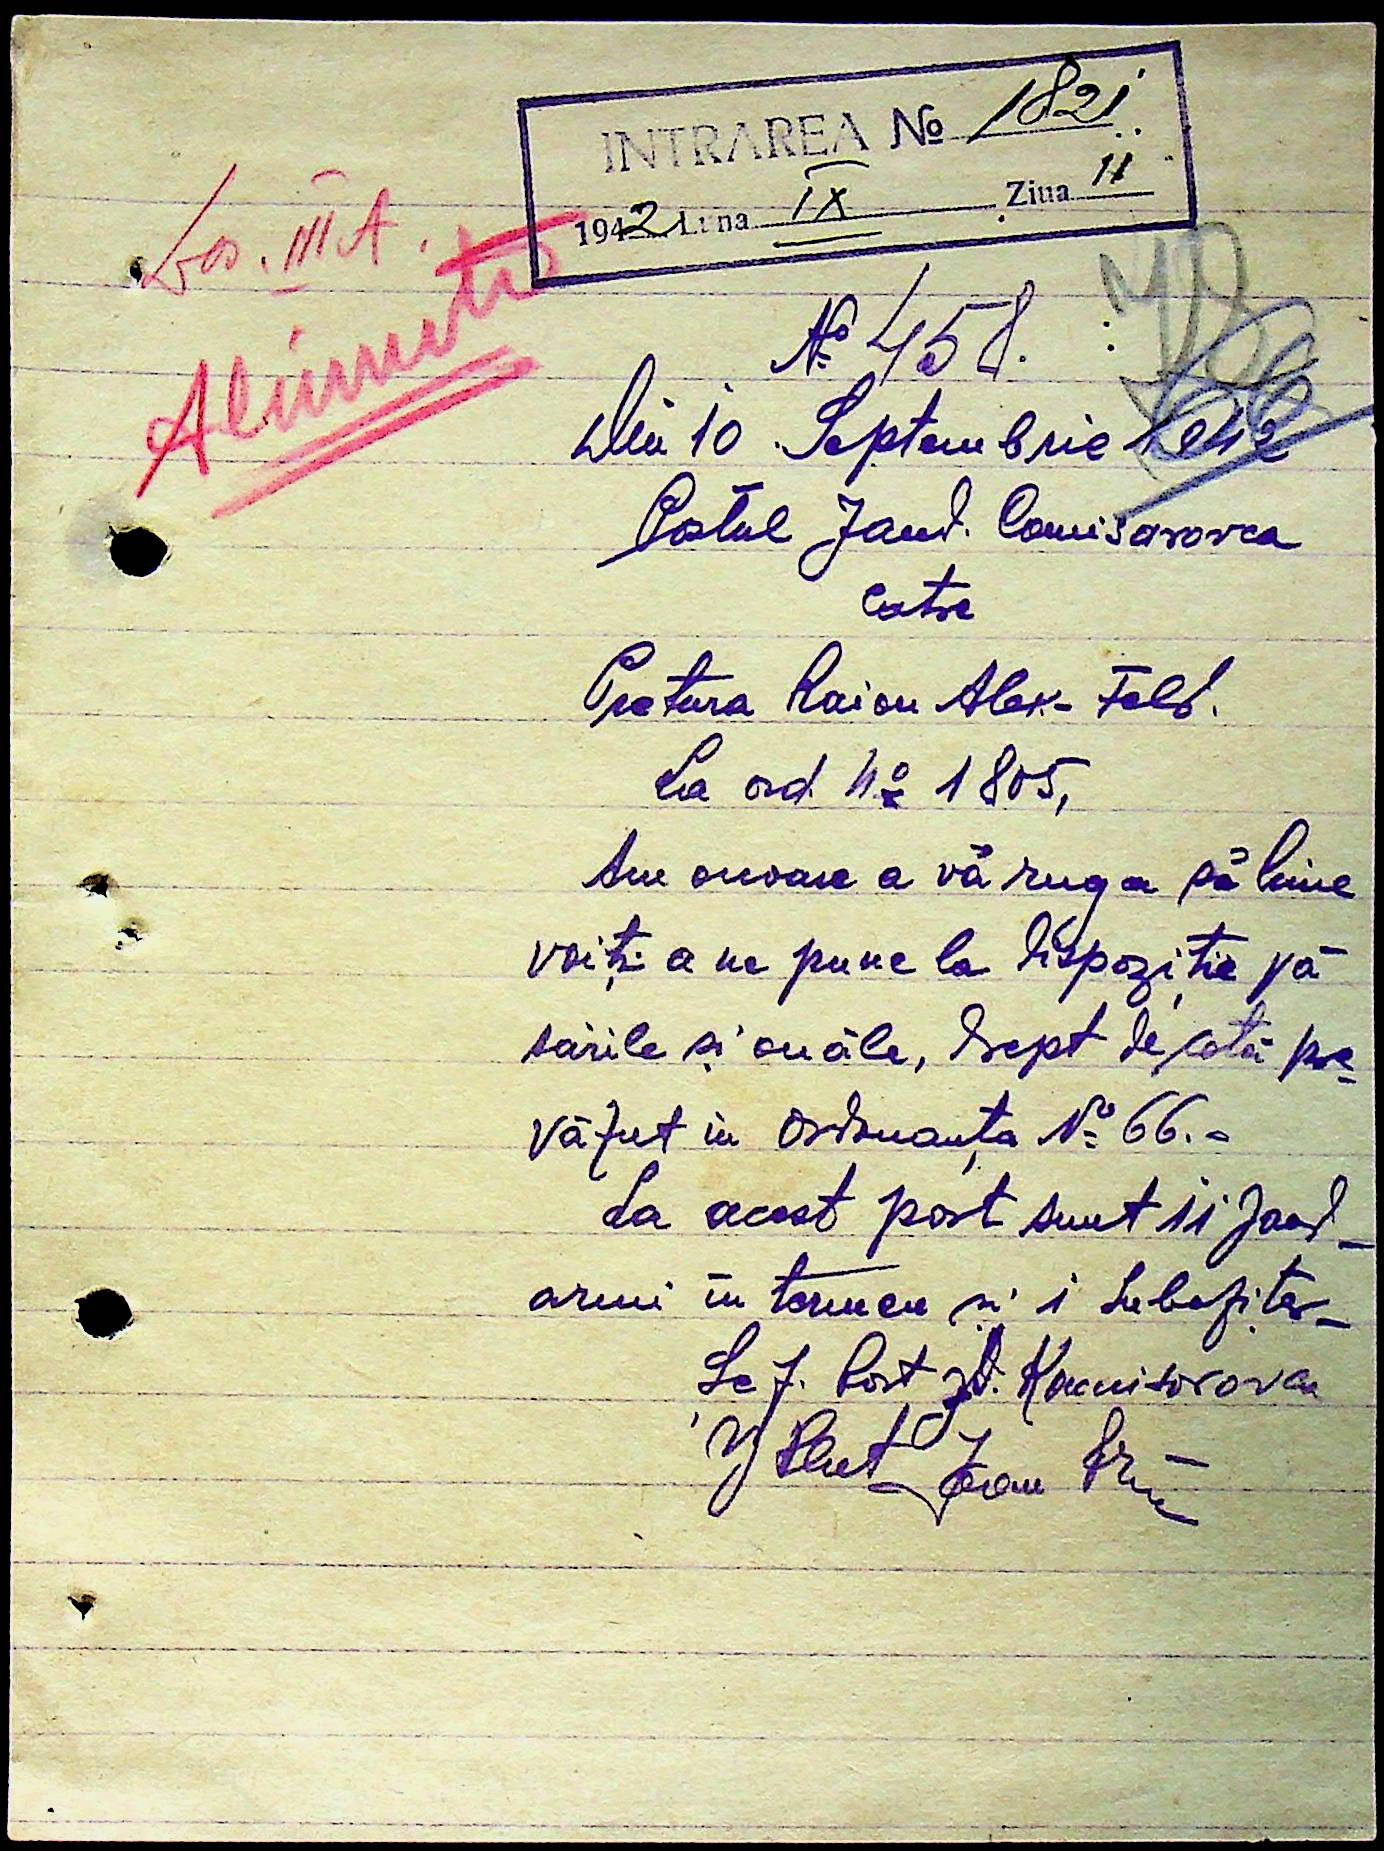 INTRAREA No 1821
1942 Luna IX Ziua 11
Dos. III A.
Alimente
No 458.
Din 10 Septembrie 1942
Postul Jand. Comisarovca
catre
Pretura Raion Alex-Feld.
La ord No 1805,
Am onoare a vă ruga să bine
voiți a ne pune la dispoziție pă
sările și ouăle, drept de cotă pre-
văzut in Ordonanța No 66.-
La acest post sunt 11 Jand-
armi în termen și 1 Subofițer-
Șef. Post Jd. Komisarovca
Plut. Ioan